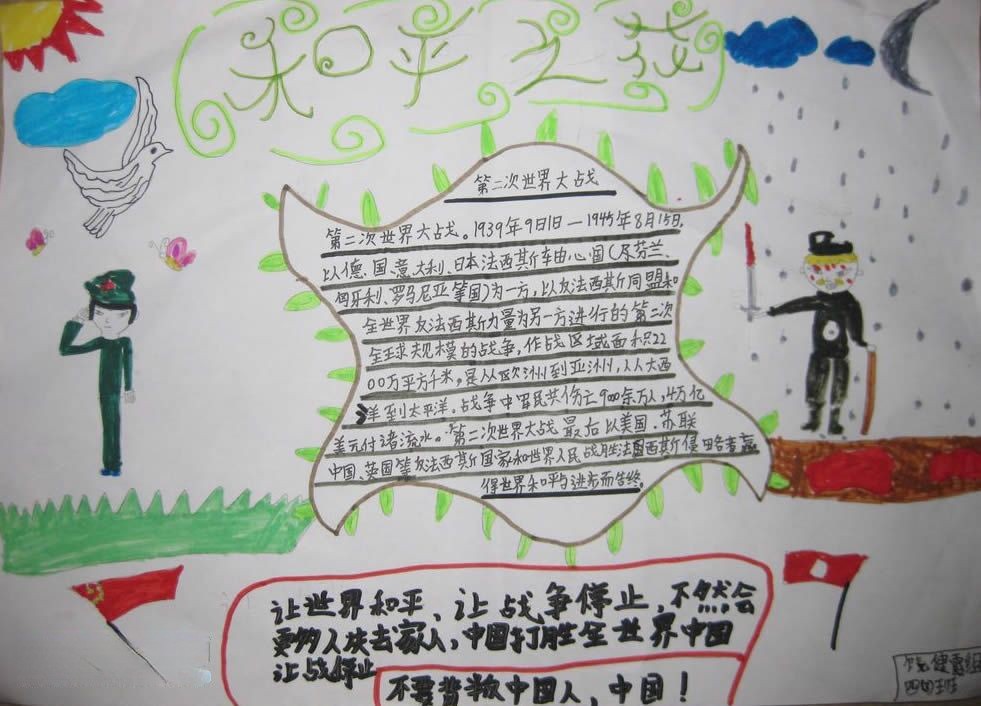 和平之战
第二次世界大战
第二次世界大战。1939年9日1日—1945年8月15日,
以德、国、意大利、日本法西斯车由心国(及芬兰、
匈牙利、罗马尼亚等国)为一方,以反法西斯同盟和
全世界反法西斯力量为另一方进行的第二次
全球规模的战争,作战区域面积22
00万平方千米,是从欧洲到亚洲,从大西
洋到太平洋。战争中军民共伤亡900余万人,4万亿
美元付诸流水。第二次世界大战最后以美国、苏联
中国、英国等反法西斯国家和世界人民战胜法西斯侵略者赢
得世界和平与进步而告终。
让世界和平、让战争停止,不然会
更多人失去家人,中国打胜全世界中国
让战停止
不要背叛中国人,中国!